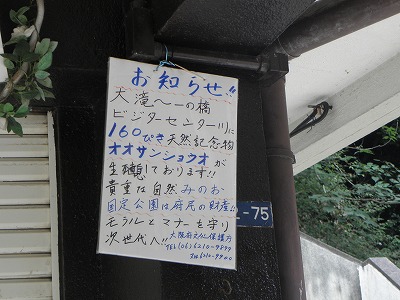 お知らせ!!
大滝〜一の橋
ビジターセンター川に
160ぴき天然記念物
オオサンショウオが
生息しております!!
貴重は自然みのお
国定公園は府民の財産!!
モラルとマナーを守り
次世代へ!! 大阪府文化保護課
TEL(06)6210-9899
FAX6210-9900
-75